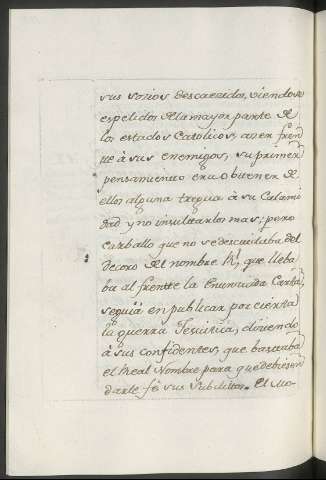 sus socios descaecidos, viendose
espelidos de la mayor parte de
los estados Catolicos,
à sus enemigos, su primer
pensamiento era obtener de
ellos alguna tregua à su Calami
dad y no insultarlos mas; pero
Carballo que no se descuidaba del
decoro del nombre Rl, que lleba
ba al frentte la Enunciada Carta,
seguia en publicar por cierta
la guerra Jesuitica, diciendo
à sus confidentes, que bastaba
el Real Nombre para que debiesen
darle fè sus Subditos. El Mo-